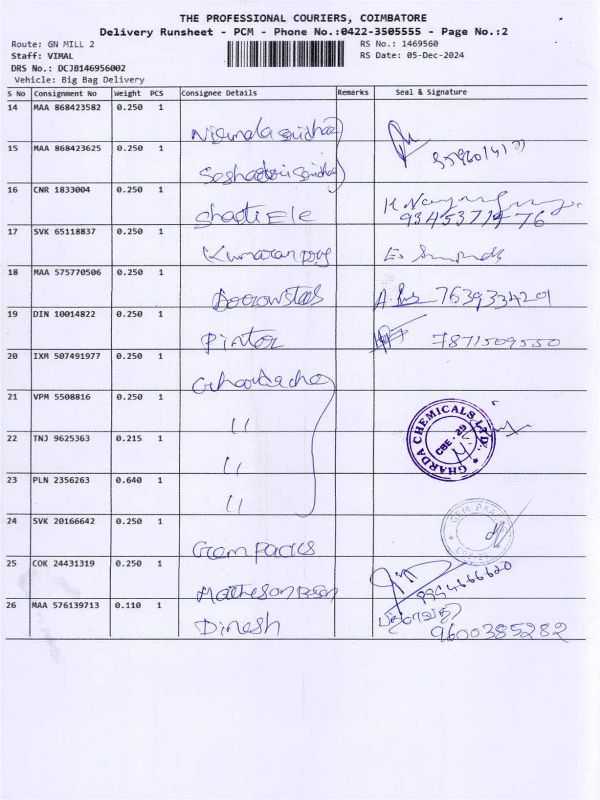 THE PROFESSIONAL COURIERS, COIMBATORE
Delivery Runsheet - PCM - Phone No.:0422-3505555 - Page No.:2
Route: GN MILL 2
RS No.: 1469560
Staff: VIMAL
RS Date: 05-Dec-2024
DRS No.: DCJB146956002
Vehicle: Big Bag Delivery
S No Consignment No Weight PCS Consignee Details Remarks Seal & Signature
14 MAA 868423582 0.250 1
15 MAA 868423625 0.250 1
16 CNR 1833004 0.250 1 Shakti Ele
9345371476
17 SVK 65118837 0.250 1 Kumaran
18 MAA 575770506 0.250 1 7639334201
19 DIN 10014822 0.250 1 Pintor 7871509550
20 IXM 507491977 0.250 1
21 VPM 5508816 0.250 1 "
GHARDA CHEMICALS LTD. CBE - 29
22 TNJ 9625363 0.215 1 "
23 PLN 2356263 0.640 1 "
24 SVK 20166642 0.250 1 Gem Packs
25 COK 24431319 0.250 1 Matheson 9994666620
26 MAA 576139713 0.110 1 Dinesh 9600385282